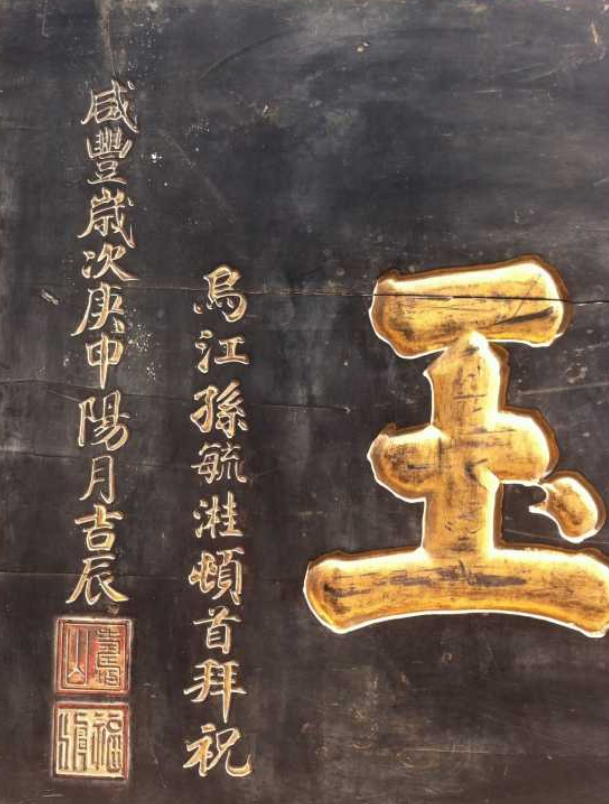 玉
烏江孫毓溎頓首拜祝
咸豐歲次庚申陽月吉辰